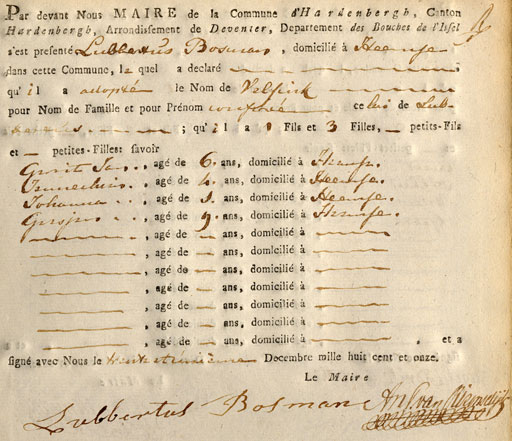 Par devant Nous MAIRE de la Commune d'Hardenbergh, Canton
Hardenbergh, Arrondissement de Deventer, Departement des Bouches de l'Issel
s'est presenté Lubbertus Bosman, domicilié à Heemse
dans cette Commune, le quel a déclaré
qu'il a adopté le Nom de
pour Nom de Famille et pour Prénom conservé ce lui de Lub-
bertus ; qu'il a 1 Fils et 3 Filles, — petits-Fils
et — petites-Filles: savoir
Gerrit Jan , agé de 6 ans, domicilié à Heemse.
, agé de 4 ans, domicilié à Heemse.
Johanna , agé de ans, domicilié à Heemse.
, agé de 9 ans, domicilié à Heemse.
, agé de — ans, domicilié à
, agé de — ans, domicilié à
, agé de — ans, domicilié à
, agé de — ans, domicilié à
, agé de — ans, domicilié à
, agé de — ans, domicilié à
, agé de — ans, domicilié à , et a
signé avec Nous le Decembre mille huit cent et onze.
Le Maire
Lubbertus Bosman